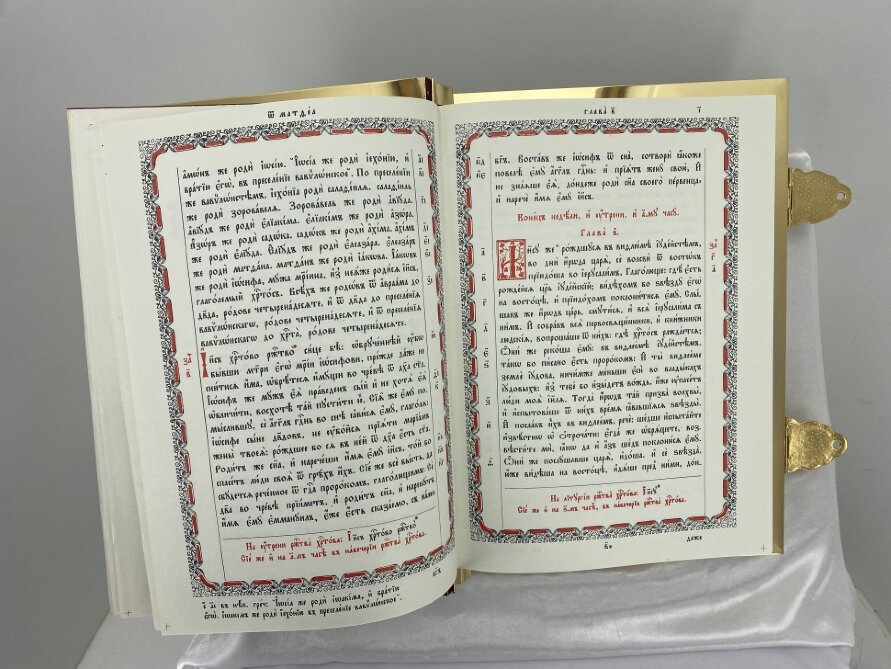 Ѿ МАТѲЕ́А
а҆мѡ́нъ же родѝ і҆ѡсі́ю. І҆ѡсі́а же родѝ і҆ехо́нїю, и҆
бра́тїю є҆гѡ̀, въ преселе́нїе вавѷлѡ́нское. По преселе́нїи
же вавѷлѡ́нстѣмъ, і҆ехо́нїа родѝ салаѳі́илѧ. салаѳі́иль
же родѝ зорова́велѧ. Зорова́вель же родѝ а҆вїу́да.
а҆вїу́дъ же родѝ є҆лїакі́ма. Є҆лїакі́мъ же родѝ а҆зѡ́ра.
А҆зѡ́ръ же родѝ садѡ́ка. садѡ́къ же родѝ а҆хі́ма. а҆хі́мъ
же родѝ є҆лїу́да. Є҆лїу́дъ же родѝ є҆леаза́ра. Є҆леаза́ръ
же родѝ матѳа́на. матѳа́нъ же родѝ і҆а́кѡва. І҆а́кѡвъ
же родѝ і҆ѡ́сифа, мѹ́жа мр҃і́ина, и҆з̾ неѧ́же роди́сѧ і҆и҃съ,
глаго́лемый хрⷭ҇то́съ. Всѣ́хъ же родѡ́въ ѿ а҆враа́ма до
дв҃да, ро́дове четырена́десѧте, и҆ ѿ дв҃да до преселе́нїѧ
вавѷлѡ́нскагѡ, ро́дове четырена́десѧте, и҆ ѿ преселе́нїѧ
вавѷлѡ́нскагѡ до хрⷭ҇та̀, ро́дове четырена́десѧте.
І҆и҃съ хрⷭ҇то́во ржⷭ҇тво̀ си́це бѣ̀: ѡ҆брѹче́ннѣй ѹ҆́бѡ
бы́вши мт҃ри є҆гѡ̀ мр҃і́и і҆ѡ́сифови, пре́жде да́же не
сни́тисѧ и҆́ма, ѡ҆брѣ́тесѧ и҆мѹ́щи во чре́вѣ ѿ дх҃а ст҃а.
І҆ѡ́сифъ же мѹ́жъ є҆ѧ̀ пра́веденъ сы́й и҆ не хотѧ̀ є҆ѧ̀
ѡ҆бличи́ти, восхотѣ̀ та́й пѹсти́ти ю҆̀. Сїѧ̑ же є҆мѹ̀ по-
мы́слившѹ, сѐ а҆́гг҃лъ гдⷭ҇ень во снѣ̀ ꙗ҆ви́сѧ є҆мѹ̀, глаго́лѧ:
і҆ѡ́сифе сы́не дв҃довъ, не ѹ҆бо́йсѧ прїѧ́ти марїа́мъ
жены̀ твоеѧ̀: ро́ждшее бо сѧ въ не́й ѿ дх҃а є҆́сть ст҃а.
Роди́тъ же сн҃а, и҆ нарече́ши и҆́мѧ є҆мѹ̀ і҆и҃съ, то́й бо
спасе́тъ лю́ди своѧ̑ ѿ грѣ̑хъ и҆́хъ. Сїе́ же всѐ бы́сть, да
сбѹ́детсѧ рече́нное ѿ гдⷭ҇а прⷪ҇ро́комъ, глаго́лющимъ: Сѐ
дв҃а во чре́вѣ прїи́метъ, и҆ роди́тъ сн҃а, и҆ нарекѹ́тъ
и҆́мѧ є҆мѹ̀ є҆ммани́илъ, є҆́же є҆́сть сказа́емо, съ на́ми
На ѹ҆́трени ржⷭ҇тва̀ хрⷭ҇то́ва: І҆и҃съ хрⷭ҇то́во ржⷭ҇тво̀
Сїѐ же и҆ на а҃-мъ часѣ̀, въ навече́рїи ржⷭ҇тва̀ хрⷭ҇то́ва.
бг҃ъ
въ нѣ́к. грѐч: І҆ѡсі́а же родѝ і҆ѡакі́ма, и҆ бра́тїю
є҆гѡ̀. і҆ѡакі́мъ же родѝ і҆ехо́нїю въ преселе́нїе вавѷлѡ́нское.
ГЛАВА̀ В҃
І҃
бг҃ъ. Воста́въ же і҆ѡ́сифъ ѿ сна̀, сотворѝ ꙗ҆́коже
повелѣ̀ є҆мѹ̀ а҆́гг҃лъ гдⷭ҇ень: и҆ прїѧ́тъ женѹ̀ свою̀, И҆
не зна́ѧше є҆ѧ̀, до́ндеже родѝ сн҃а своего̀ пе́рвенца,
и҆ наречѐ и҆́мѧ є҆мѹ̀ і҆и҃съ.
Коне́цъ недѣ́ли, и҆ ѹ҆́трени, и҆ а҃-мѹ часѹ̀.
Глава̀ в҃.
І҆и҃сѹ же ро́ждшѹсѧ въ виѳлее́мѣ і҆ѹде́йстѣмъ,
во дни̑ и҆́рѡда царѧ̀, сѐ волсвѝ ѿ восто̑къ
прїидо́ша во і҆ерⷭ҇ли́мъ. Глаго́люще: гдѣ̀ є҆́сть
рожде́йсѧ цр҃ь і҆ѹде́йскїй; ви́дѣхомъ бо ѕвѣздѹ̀ є҆гѡ̀
на восто́цѣ, и҆ прїидо́хомъ поклони́тисѧ є҆мѹ̀. Слы́-
шавъ же и҆́рѡдъ ца́рь, смѹти́сѧ, и҆ ве́сь і҆ерⷭ҇ли́мъ съ
ни́мъ. И҆ собра́въ всѧ̑ первосвѧще́нники, и҆ кни́жники
людскі̑ѧ, вопроша́ше ѿ ни́хъ: гдѣ̀ хрⷭ҇то́съ ражда́етсѧ;
Ѻ҆ни́ же реко́ша є҆мѹ̀: въ виѳлее́мѣ і҆ѹде́йстѣмъ.
та́кѡ бо пи́сано є҆́сть прⷪ҇ро́комъ: И҆ ты̀ виѳлее́ме
землѐ і҆ѹ́дова, ничи́мже ме́ньши є҆сѝ во влады́кахъ
і҆ѹ́довыхъ: и҆з̾ тебе́ бо и҆зы́детъ во́ждь, и҆́же ѹ҆пасе́тъ
лю́ди моѧ̑ і҆и҃лѧ. Тогда̀ и҆́рѡдъ та́й призва̀ волхвы̀,
и҆ и҆спы́товаше ѿ ни́хъ вре́мѧ ꙗ҆́вльшїѧсѧ ѕвѣзды̀.
И҆ посла́въ и҆̀хъ въ виѳлее́мъ, речѐ: ше́дше и҆спыта́йте
и҆звѣ́стнѡ ѡ҆ ѻ҆троча́ти: є҆гда́ же ѡ҆брѧ́щете, воз-
вѣсти́те мѝ, ꙗ҆́кѡ да и҆ а҆́зъ ше́дъ поклоню́сѧ є҆мѹ̀.
Ѻ҆ни́ же послѹ́шавше царѧ̀, и҆до́ша. и҆ сѐ ѕвѣзда̀,
ю҆́же ви́дѣша на восто́цѣ, и҆дѧ́ше пред̾ ни́ми, до́н-
На літѹргі́и ржⷭ҇тва̀ хрⷭ҇то́ва: І҆и҃сѹ
Сїѐ же и҆ на ѳ҃-мъ часѣ̀, въ навече́рїи ржⷭ҇тва̀ хрⷭ҇то́ва.
деже